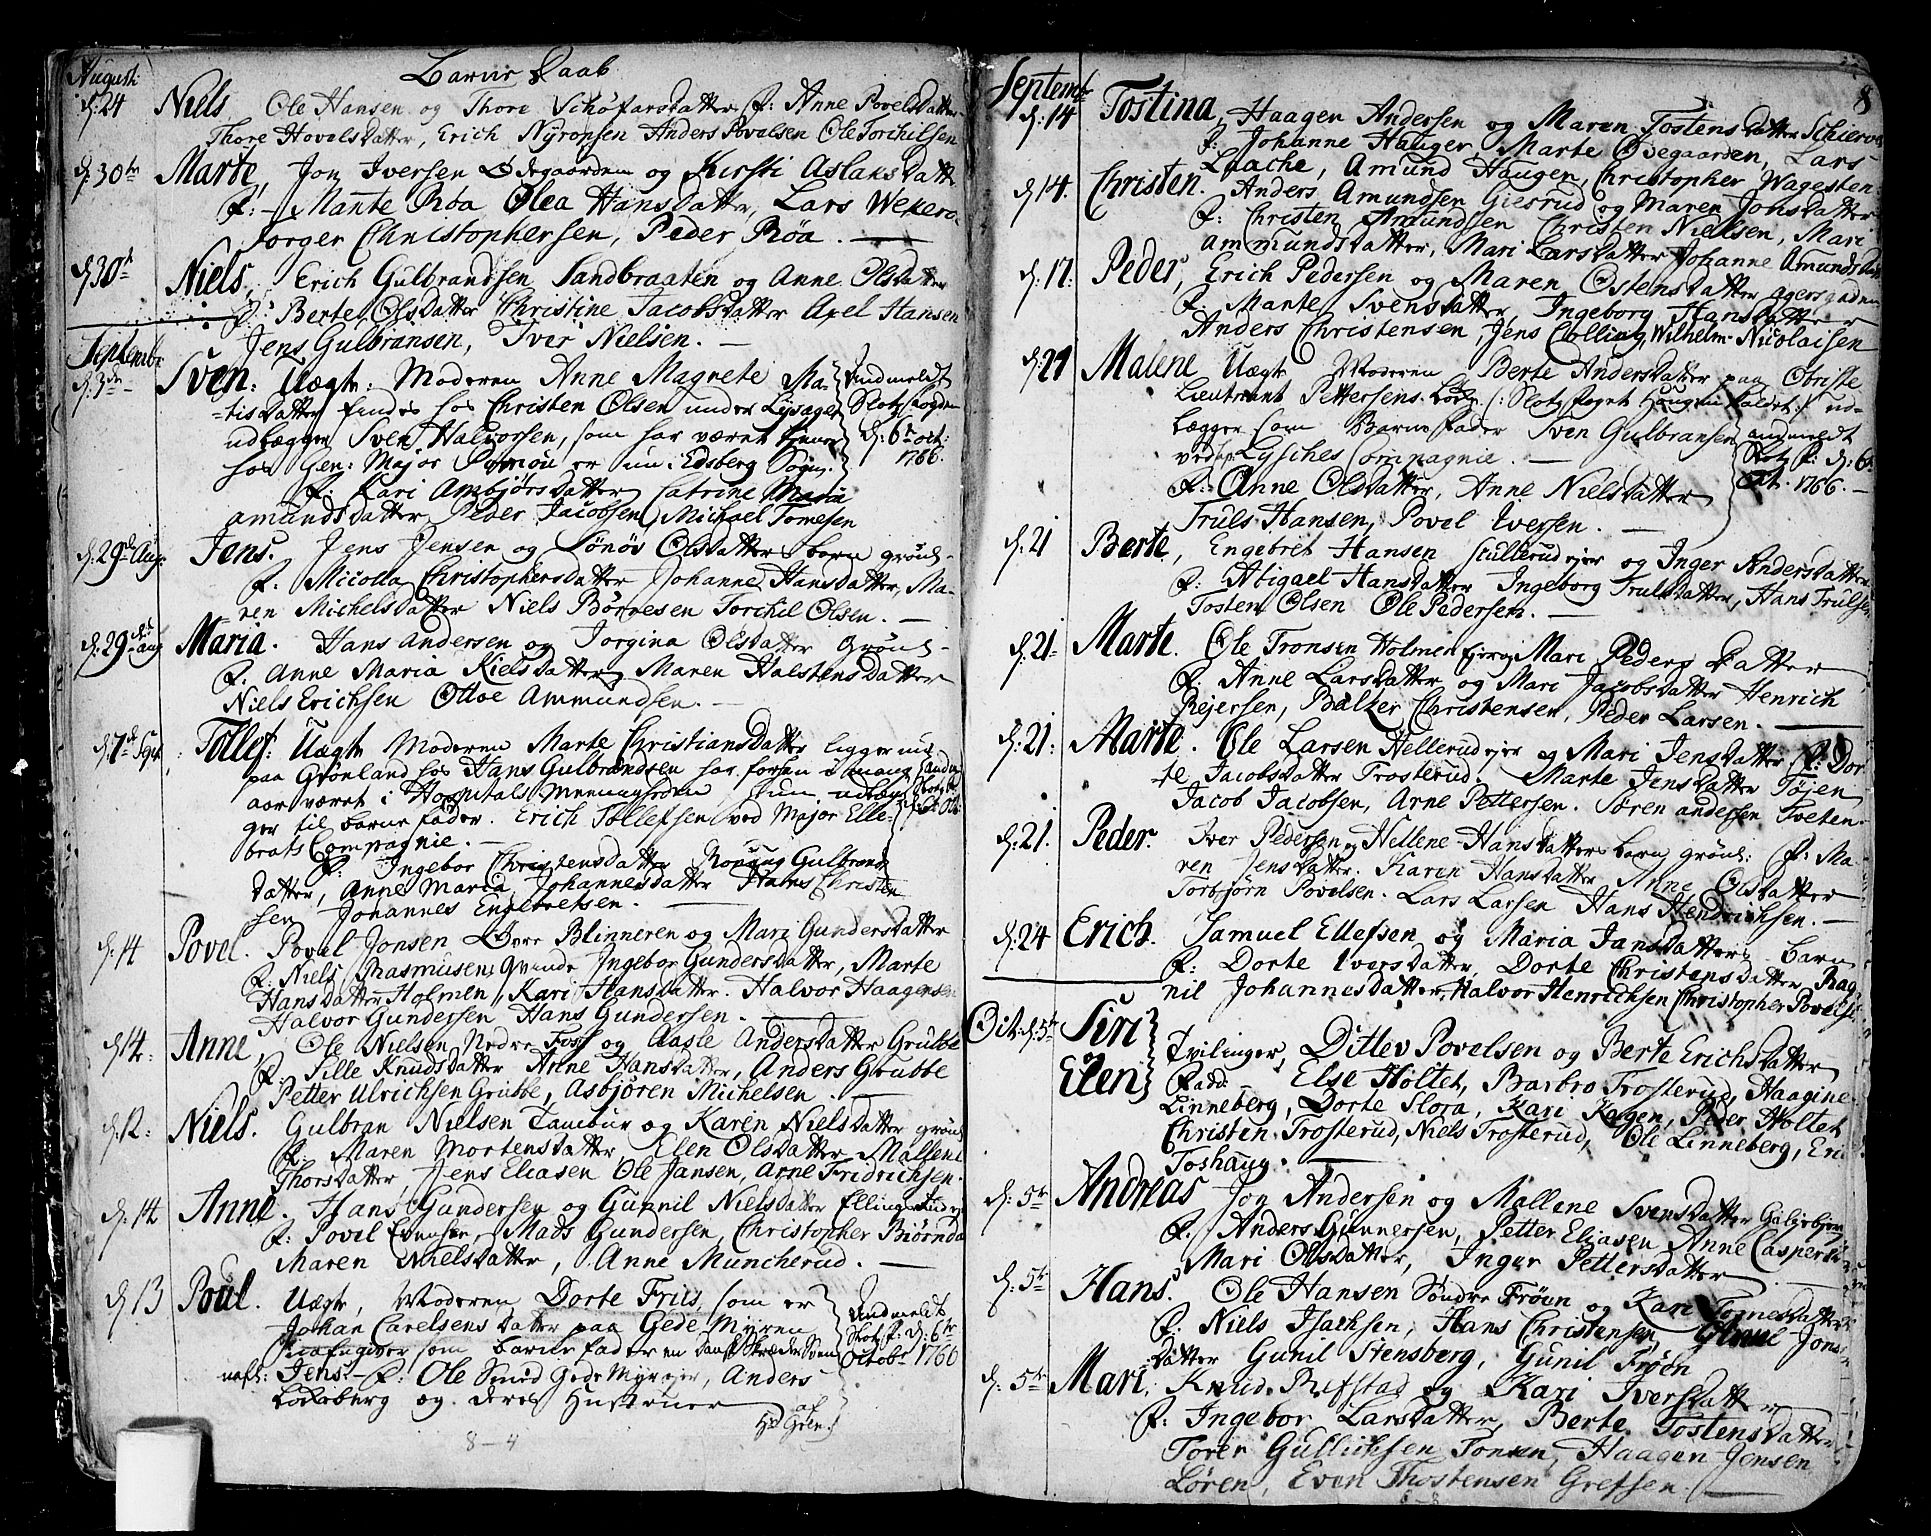 Augusti
Barne Daab
d: 24 Niels Ole Hansen og Thore Schöfarsdatter F: Anne Povelsdatter
Thore Hovelsdatter, Erich Nyropsen Anders Povelsen Ole Torchilsen
d: 30te Marte, Jon Iversen Ødegaarden og Kirsti Aslaksdatt
F: Mante Röa Olea Hansdatter, Lars Wekerö
Jorger Christophersen, Peder Röa. —
d: 30te Niels, Erich Gulbrandsen Sandbraaten og Anne Olsdatter
F: Berte Olsdatter Christine Jacobsdatter Axel Hansen
Jens Gulbransen, Iver Nielsen. —
Septembr
d: 3die Sven: Uægte: Moderen Anne Magnete Ma-
tisdatter findes hos Christen Olsen under Lysager
udlægger Sven Halvorsen, som har været tiener
hos Gen: Major er nu i Edsberg Sogn.
Andmeldt Slotz fogden d: 6te oct: 1766.
F: Kari Ambjörsdatter Catrine Maria
amundsdatter Peder Jacobsen Michael Tomesen
d: 29de Aug: Jens. Jens Jensen og Sönöv Olsdatter barn grönl-
F: Nicolla Christophersdatter Johanne Hansdatter, Ma-
ren Michelsdatter Niels Börresen Torchil Olsen. —
d: 29de aug Maria. Hans Andersen og Jorgina Olsdatter Grönl-
F. Anne Maria Nielsdatter Maren Halstensdatter
Niels Erichsen Ottoe Ammundsen. —
d: 7de Sept Tollef: Uægte Moderen Marte Christiansdatter ligger inde
paa Grönland hos Hans Gulbrandsen har forhen i mange
aar været i Hospitals Mennigheden, hun udlæg-
ger til barnefader. Erich Tollefsen ved Major Elle-
brats Compagnie. —
F: Ingebor Christensdatter Gulbrands
datter, Anne Maria Johannesdatter Hans Christen
sen Johannes Engebretsen. —
d: 14 Povel. Povel Jonsen Övre Blinneren og Mari Gundersdatter
F. Niels Rasmusens Qvinde Ingebor Gundersdatter, Marte
Hansdatter Holmen, Kari Hansdatter. Halvor Haagensen
Halvor Gundersen Hans Gundersen. —
d: 14. Anne, Ole Nielsen Nedre Foss og Aasle Andersdatter Grubbe
F. Sille Knudsdatter Anne Hansdatter, Anders Grubbe
Petter Ulrichsen Grubbe, Asbjören Michelsen. —
d: 12: Niels. Gulbran Nielsen Tambur og Karen Nielsdatter grönl
F: Maren Mortensdatter, Elen Olsdatter, Mallene
Thorsdatter, Jens Eliasen Ole Jansen, Arne Fridrichsen.
d: 14 Anne. Hans Gundersen og Gunnil Nielsdatter Ellingsrud
F: Povel Evensen, Mads Gundersen, Christopher Biörnda
Maren Nielsdatter, Anne Muncherud. —
d: 13 Poul. Uægte, Moderen Dorte Friis, som er
Johan Carelsens datter paa Gede Myren
som barnefader en Dansk Skræder Sven
nafl: Jens — F: Ole Smed Gede Myrejer, Anders
og deres Hustruer
Andmeldt Slotz f. d: 6te Octobr 1766
af
8 - 4
8
Septembr
d: 14 Tostina, Haagen Andersen og Maren Tostensdatter Schierven
F: Johanne Hauger Marte Ødegaarden, Lars
Laache, Amund Haugen, Christopher Wagesten.
d: 14. Christen. Anders Amundsen Giesrud og Maren Jonsdatter
F: Christen Amundsen Christen Nielsen, Mari
Ammundsdatter, Mari Larsdatter Johanne Amundsda
d: 17: Peder, Erich Pedersen og Maren Ostensdatter agersgaden
F: Mante Svensdatter, Ingeborg Hansdatter
Anders Christensen, Jens Colling, Wilhelm Nicolaisen
d: 21 Malene Uægte Moderen Berte Andersdatter paa Christe
Lieutnant Pettersens ud-
lægger som Barnefader Sven Gulbransen
ved Lysches Compagnie. —
andmeldt Slotz f: d: 6te Oct. 1766. —
F: Anne Olsdatter, Anne Nielsdatter
Truls Hansen, Povel Iversen. —
d: 21 Berte, Engebret Hansen Skullerudejer og Inger Andersdatter
F: Abigael Hansdatter Ingeborg Trulsdatter, Hans Trulsen
Tosten Olsen Ole Pedersen. —
d: 21 Marte. Ole Tronsen Holmen Ejer og Mari Peders Datter
F. Anne Larsdatter og Mari Jacobsdatter Henrich
Rejersen, Balzer Christensen, Peder Larsen. —
d: 21: Marte. Ole Larsen Hellerudejer og Mari Jensdatter F: Dor
te Jacobsdatter Trosterud. Marte Jensdatter Töjen
Jacob Jacobsen, Arne Pettersen. Sören Andersen Tveten
d: 21. Peder. Iver Pedersen og Hellene Hansdatters barn grönl: F: Ma
ren Jensdatter. Karen Hansdatter Anne Olsdatter
Torbjörn Povelsen. Lars Larsen Hans Hendrichsen. —
d: 24 Erich. Samuel Ellefsen og Maria Jansdatters barn
F: Dorte Iversdatter, Dorte Christensdatter, Rag
nil Johannesdatter, Halvor Henrichsen Christopher Povelse
Oct: d: 5te Siri
Elen
Tvilinger, Ditlev Povelsen og Berte Erichsdatter
Fadd: Else Holtet, Barbro Trosterud, Haagine
Linneberg, Dorte Flora, Kari Kagen, Peder Holtet
Christen Trosterud, Niels Trosterud, Ole Linneberg, Eri
Toshaug. —
d: 5te Andreas Jon Andersen og Mallene Svensdatter Galjebjerg
F. Anders Gunnersen, Petter Eliasen Anne Caspersd
Mari Olsdatter, Inger Pettersdatter
d: 5te Hans. Ole Hansen Söndre Fröen og Kari Tomesdatter
F. Niels Isachsen, Hans Christensen, Jons
datter Gunil Stensberg, Gunil Fröen
d: 5te Mari, Knud Refstad og Kari Iversdatter
F: Ingebor Larsdatter, Berte Tostensdatter
Torer Gullichsen Tonsen, Haagen Jensen
Lören, Even Thostensen Grefsen. —